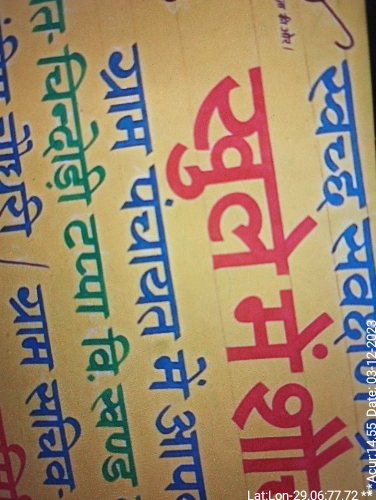 की ओर।
स्वच्छ
खुले में शौ
ग्राम पंचायत में आप
त चिन्दोड़ी टप्पा वि.खण्ड
चौधरी / ग्राम सचिव
Lat:Lon-29.06:77.72
**Acur:14.55 Date: 03-12-2023